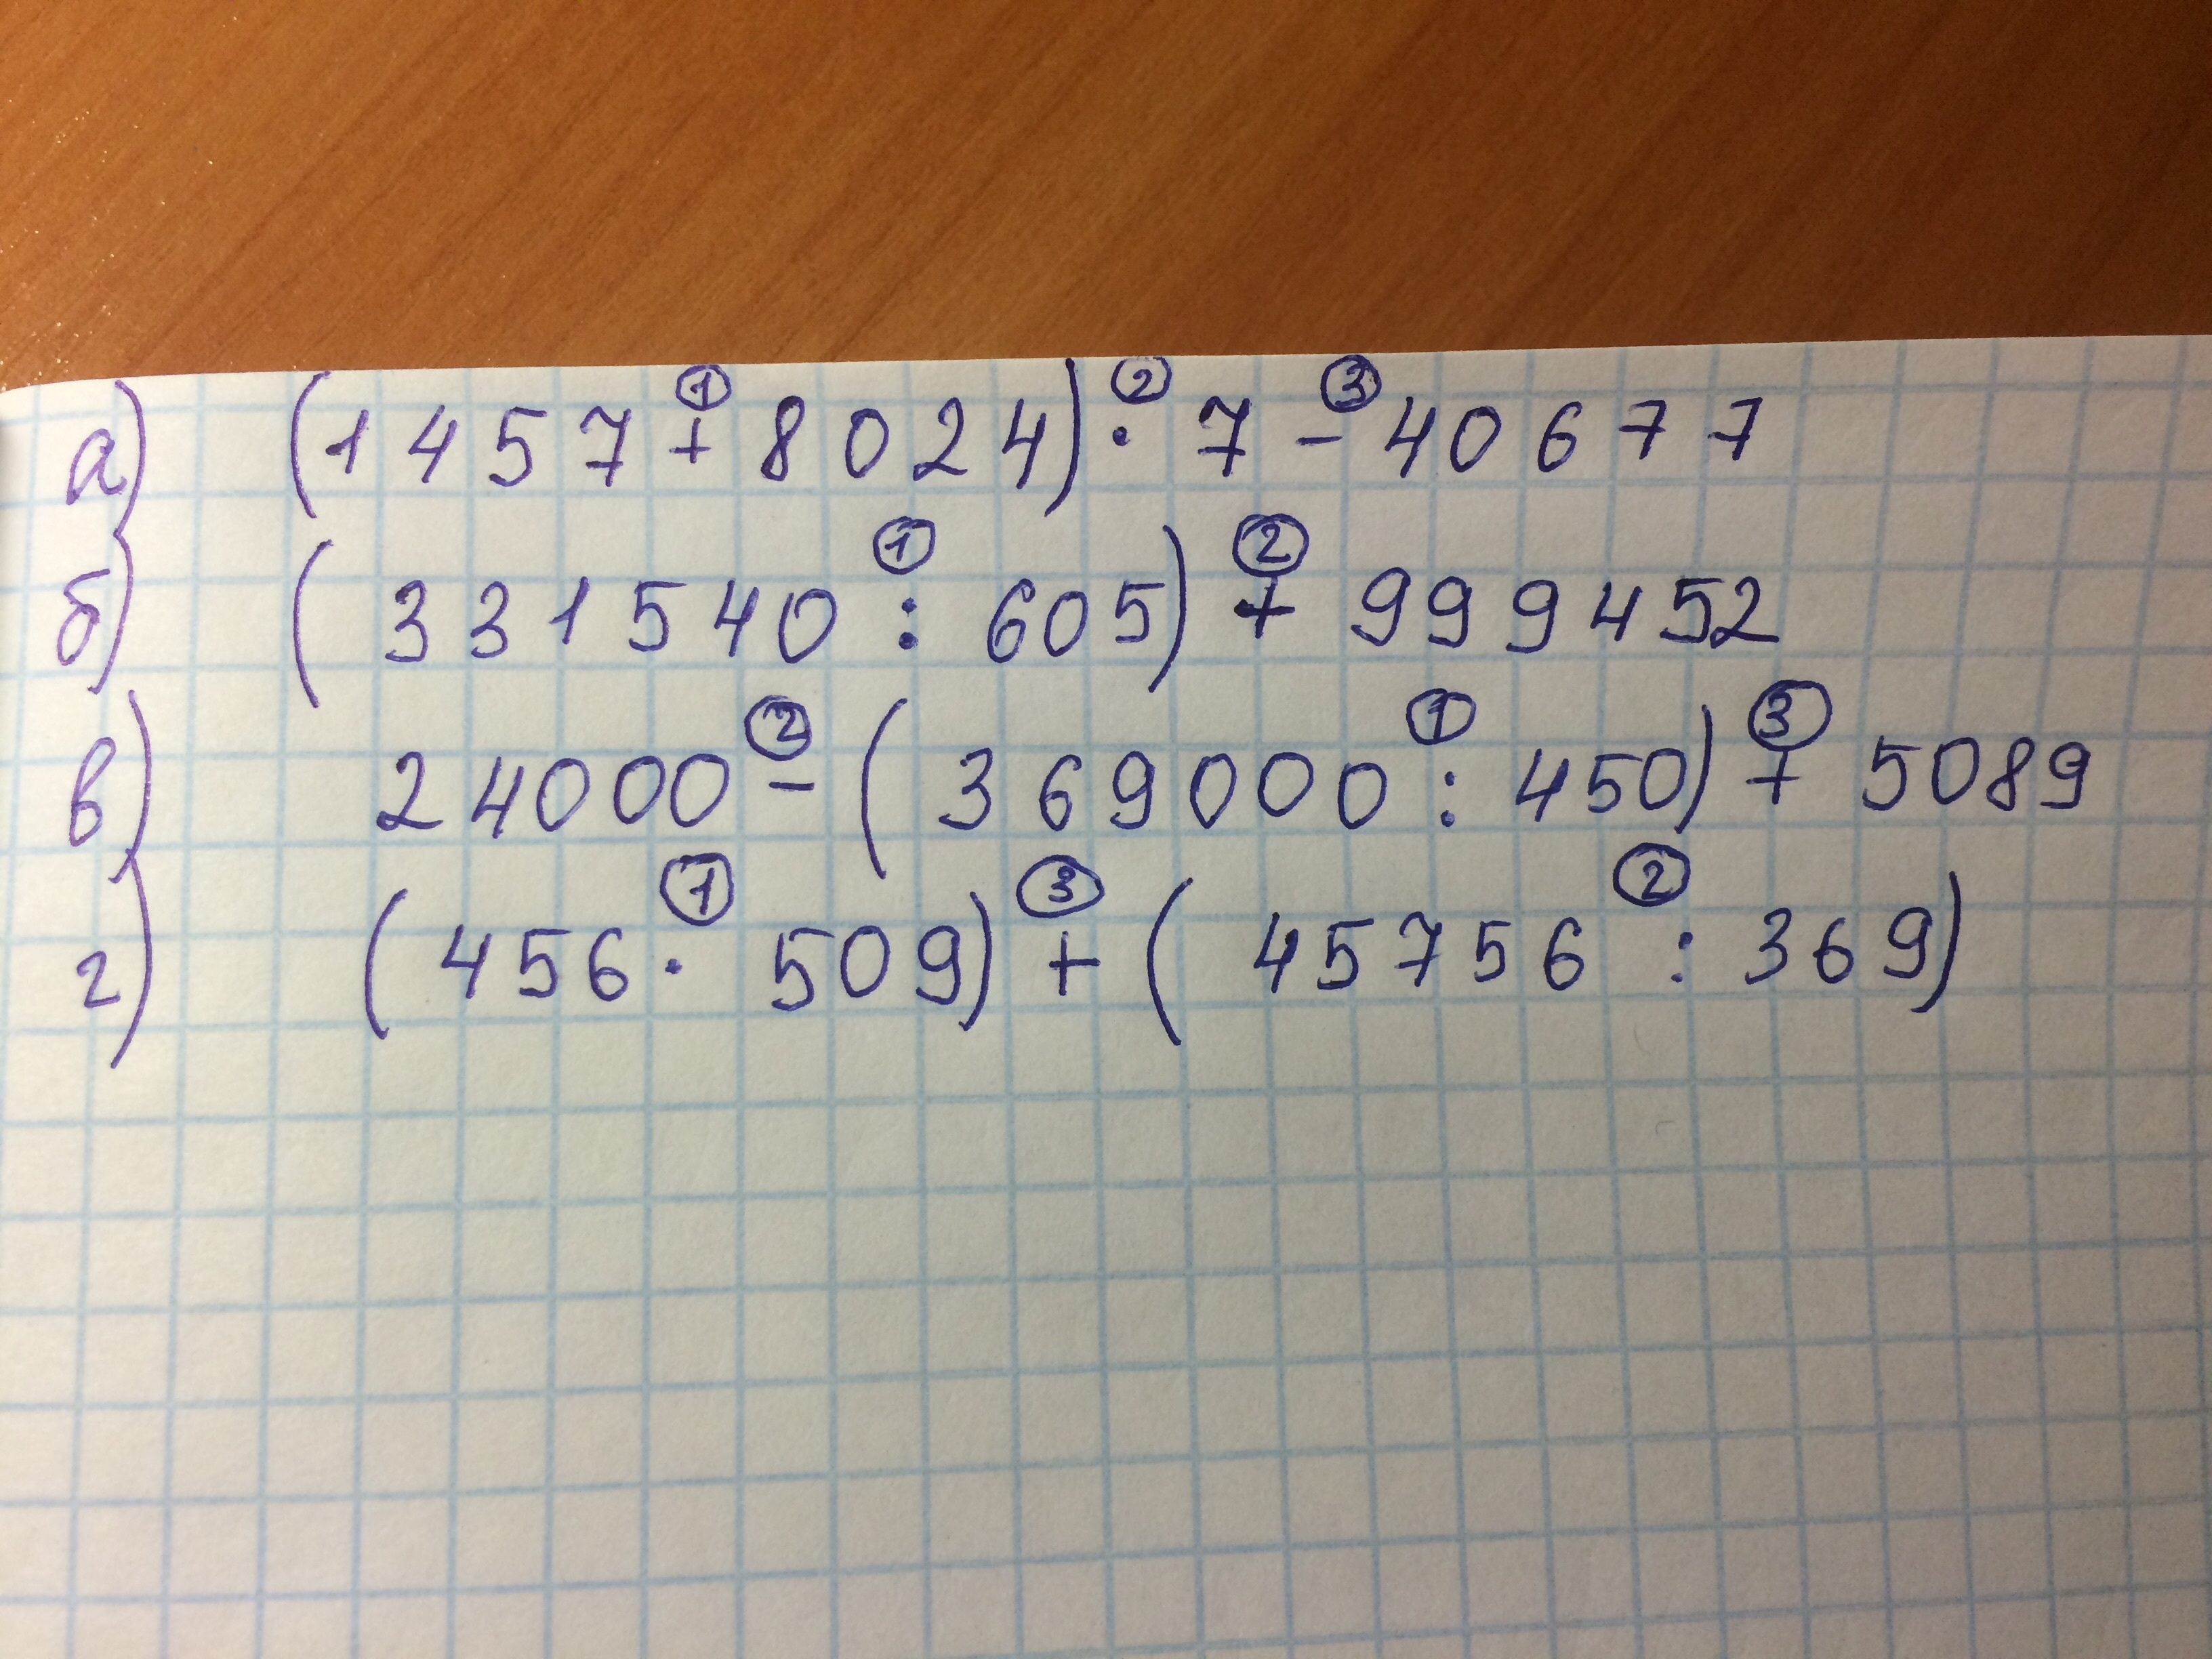 а) (1457 + ① 8024) · ② 7 - ③ 40677
б) (331540 : ① 605) + ② 999452
в) 24000 - ② (369000 : ① 450) + ③ 5089
г) (456 · ① 509) + ③ (45756 : ② 369)